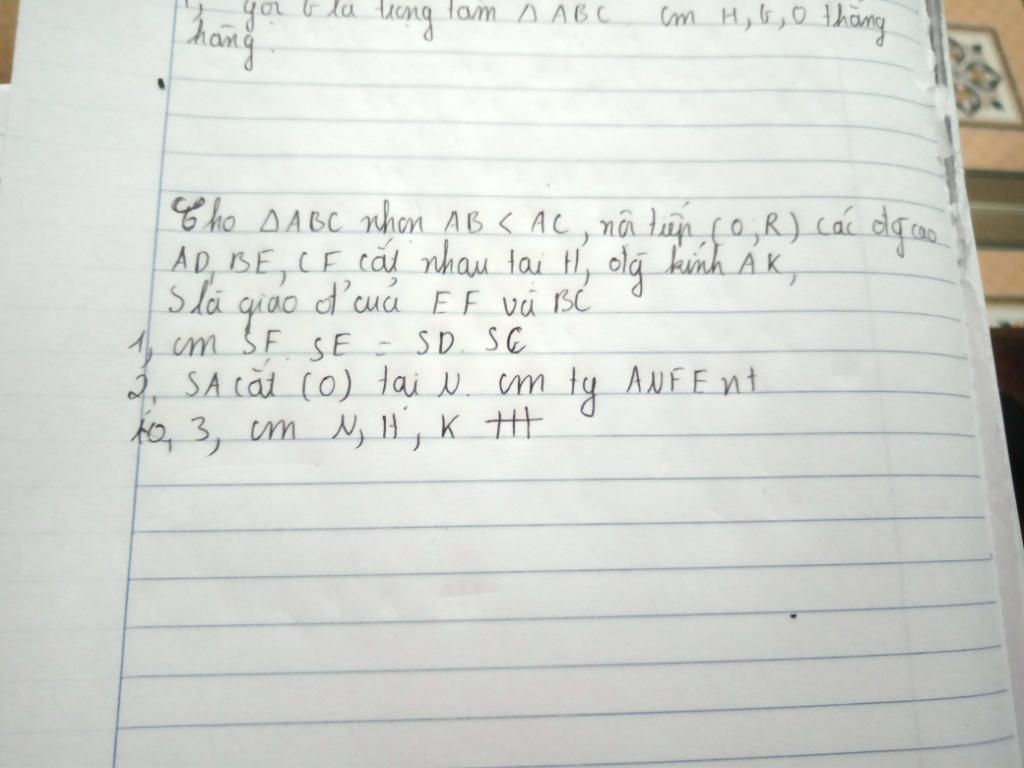 1, gọi G là trọng tâm △ ABC. cm H, G, O thẳng
hàng.
Cho △ABC nhọn AB < AC, nội tiếp (O, R) các đg cao
AD, BE, CF cắt nhau tại H, đg kính AK,
S là giao đ' của EF và BC
1, cm SF. SE = SD. SC
2, SA cắt (O) tại N. cm tg ANFE nt
3, cm N, H, K TH